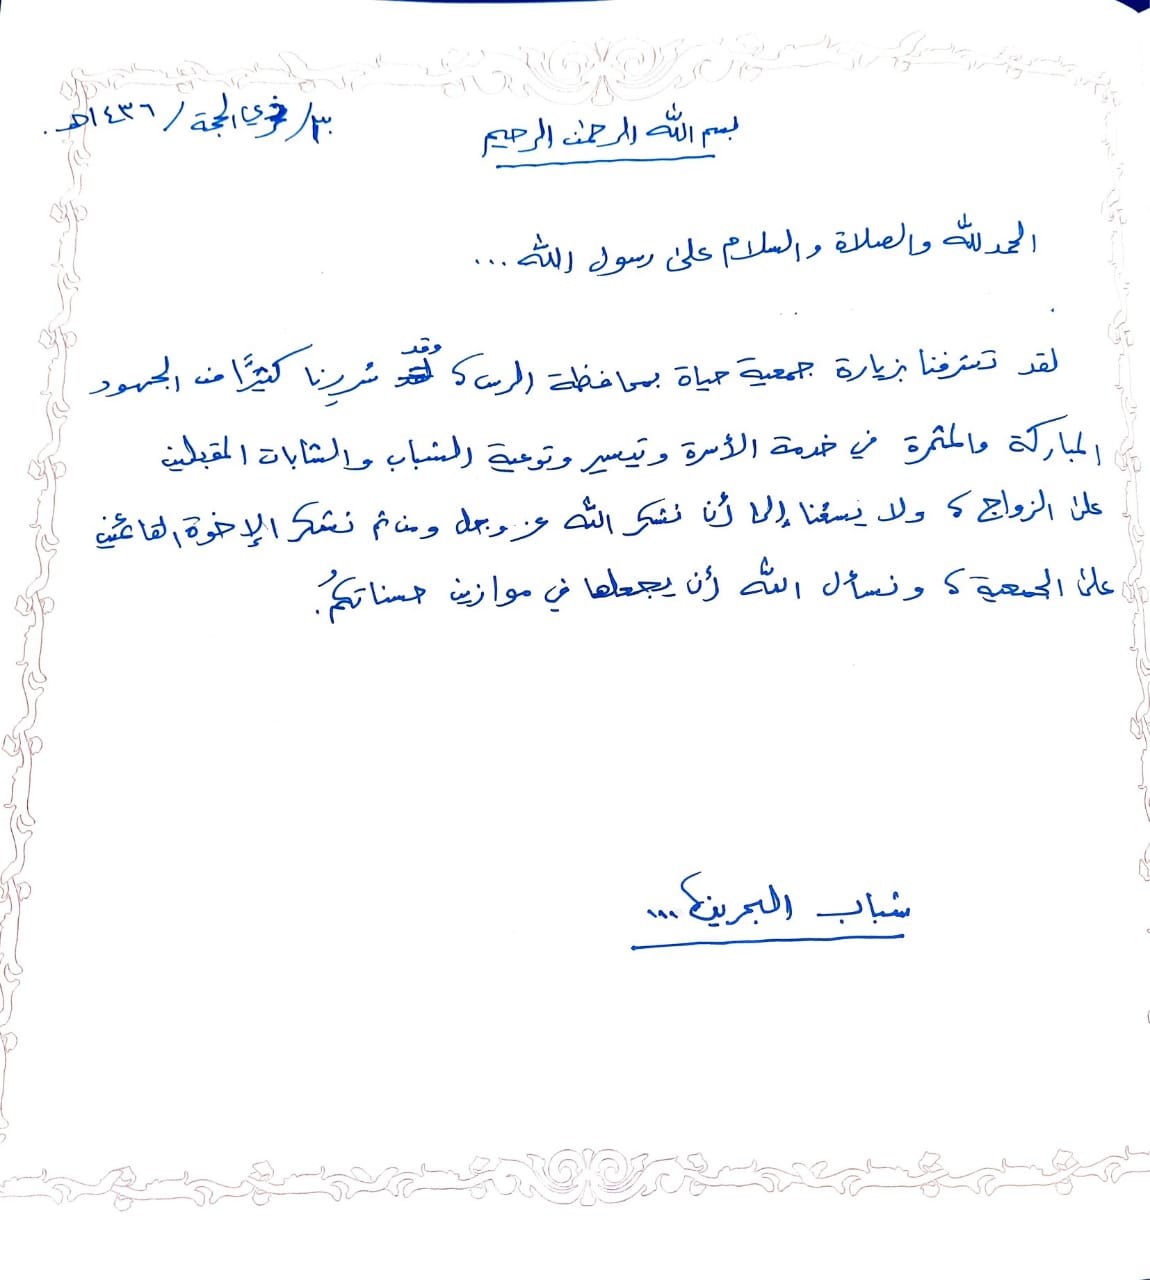 ٣٠/ذي الحجة/١٤٣٦هـ.
بسم الله الرحمن الرحيم
الحمد لله والصلاة والسلام على رسول الله ...
لقد تشرفنا بزيارة جمعية حياة بمحافظة الرس، وقد سُررنا كثيرًا من الجهود
المباركة والمثمرة في خدمة الأسرة وتيسير وتوعية الشباب والشابات المقبلين
على الزواج، ولا يسعُنا إلا أن نشكر الله عز وجل ومن ثم نشكر الإخوة القائمين
على الجمعية، ونسأل الله أن يجعلها في موازين حسناتكمُ.
شباب البحرين، ...